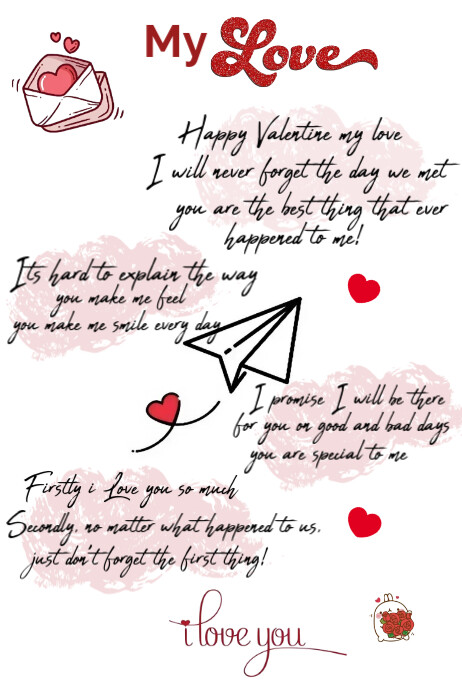 My Love
Happy Valentine my love
I will never forget the day we met
you are the best thing that ever
happened to me!
Its hard to explain the way
you make me feel
you make me smile every day
I promise I will be there
for you on good and bad days
you are special to me
Firstly i Love you so much
Secondly, no matter what happened to us,
just don't forget the first thing!
i love you